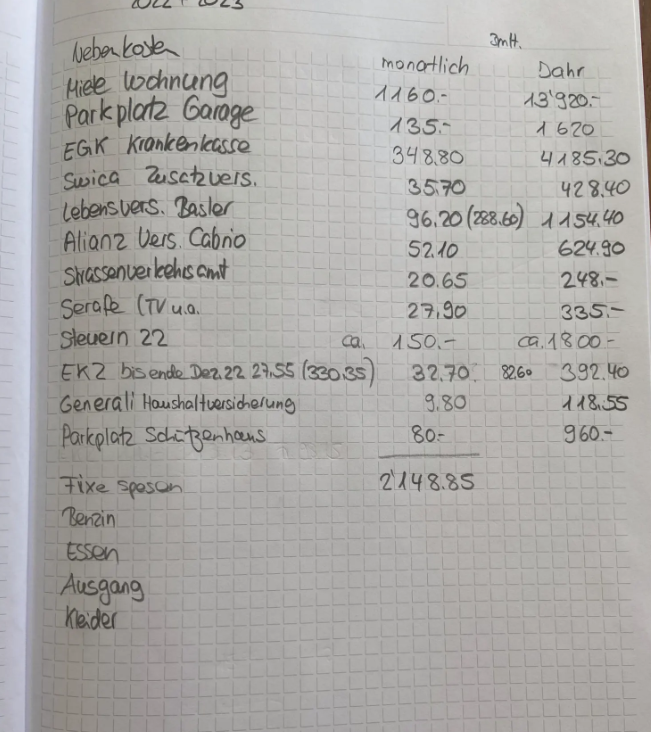 2022 + 2023
3mt.
Nebenkosten monatlich Jahr
Miete Wohnung 1160.- 13'920.-
Parkplatz Garage 135.- 1620
EGK Krankenkasse 348.80 4185.30
Swica Zusatzvers. 35.70 428.40
Lebensvers. Basler 96.20 (288.60) 1154.40
Alianz Vers. Cabrio 52.10 624.90
Strassenverkehrsamt 20.65 248.-
Serafe (TV u.a. 27.90 335.-
Steuern 22 ca. 150.- ca. 1800-
EKZ bis ende Dez. 22 27,55 (330.35) 32.70 82.60 392.40
Generali Haushaltversicherung 9.80 118.55
Parkplatz Schützenhaus 80.- 960.-
Fixe spesen 2'148.85
Benzin
Essen
Ausgang
Kleider